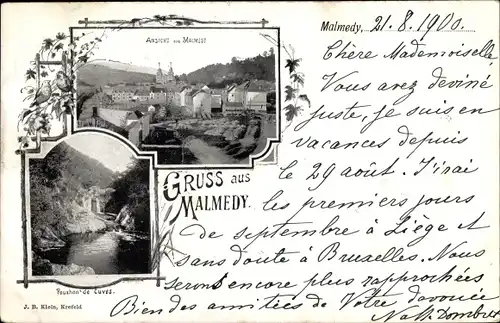 Ansicht von Malmedy
Gruss aus
Malmedy.
Pouxhon de Cuves.
J. B. Klein, Krefeld
Malmedy, 21. 8. 1900.
Chère Mademoiselle
Vous avez deviné
juste, je suis en
vacances depuis
le 29 août. J'irai
les premiers jours
de septembre à Liège et
sans doute à Bruxelles. Nous
serons encore plus rapprochées
Bien des amitiés de Votre dévouée